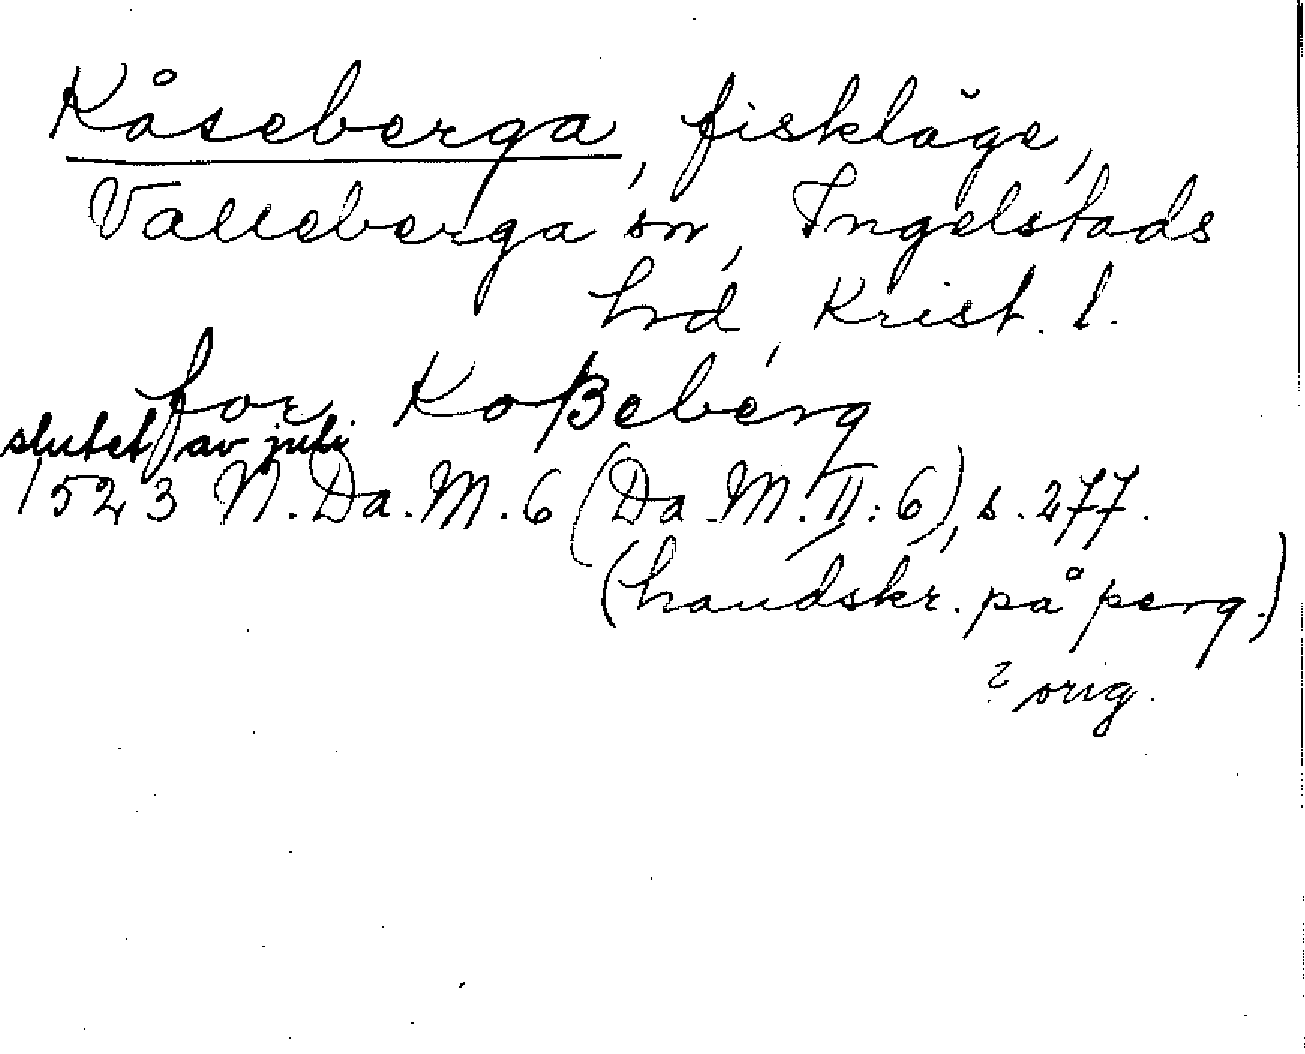 Kåseberga, fiskläge,
Valleberga sn, Ingelstads
hd, Krist. l.
for Koßeberg
slutet av juli
1523 N.Da.M.6 (Da.M.II:6), s. 277.
(handskr. på perg.)
? orig.